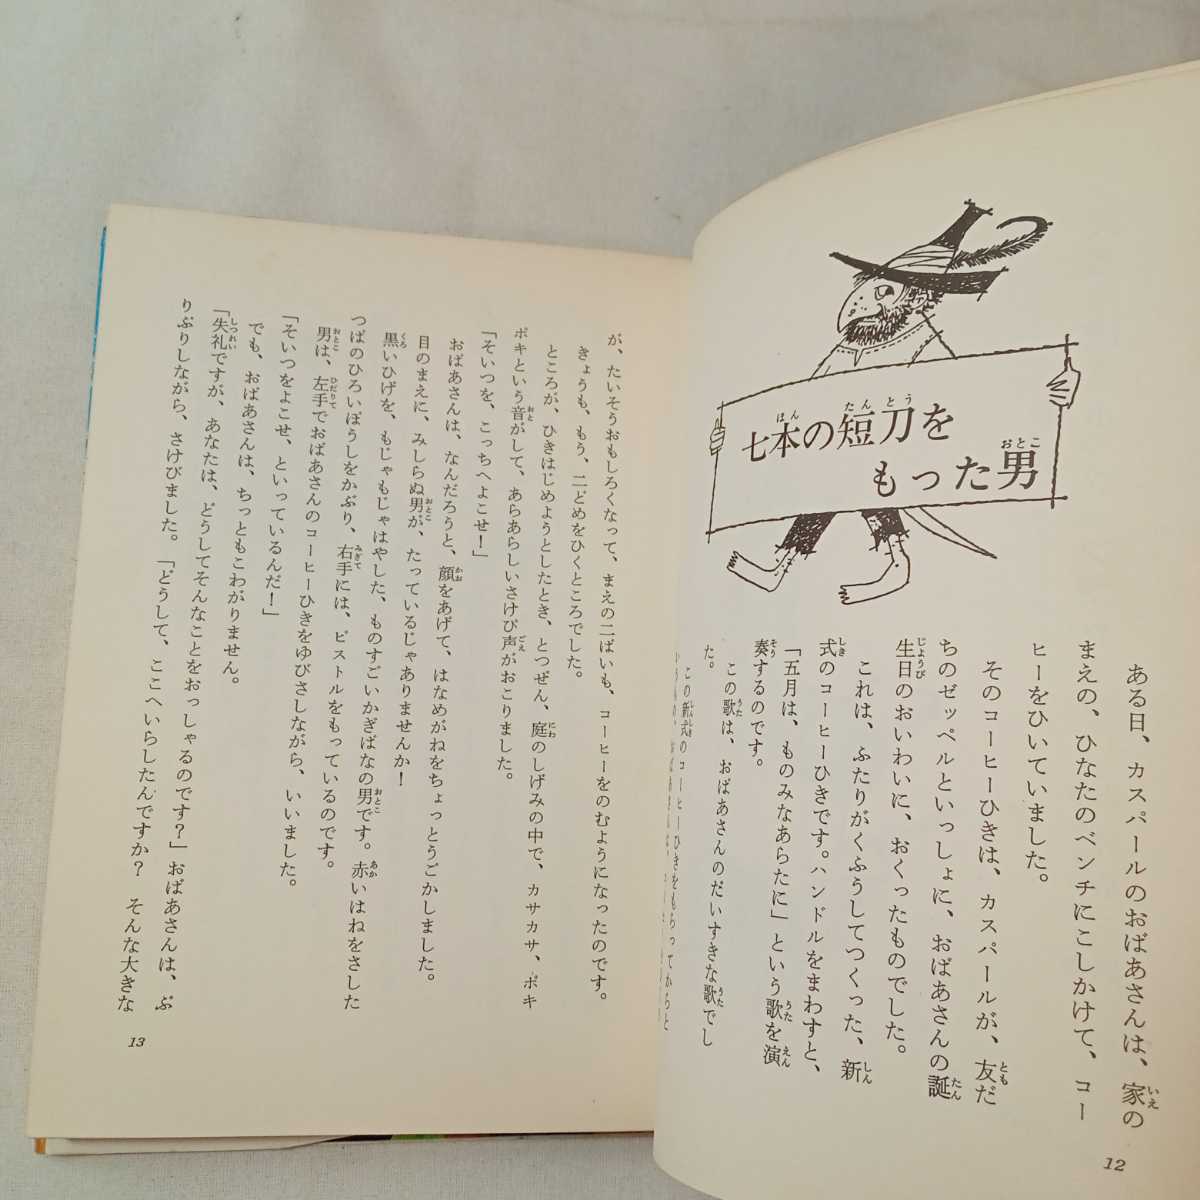 七本の短刀を
もった男
ある日、カスパールのおばあさんは、家の
まえの、ひなたのベンチにこしかけて、コー
ヒーをひいていました。
そのコーヒーひきは、カスパールが、友だ
ちのゼッペルといっしょに、おばあさんの誕
生日のおいわいに、おくったものでした。
これは、ふたりがくふうしてつくった、新
式のコーヒーひきです。ハンドルをまわすと、
「五月は、ものみなあらたに」という歌を演
奏するのです。
この歌は、おばあさんのだいすきな歌でし
た。
この新式のコーヒーひきをもらってからと
12
が、たいそうおもしろくなって、まえの二ばいも、コーヒーをのむようになったのです。
きょうも、もう、二どめをひくところでした。
ところが、ひきはじめようとしたとき、とつぜん、庭のしげみの中で、カサカサ、ボキ
ボキという音がして、あらあらしいさけび声がおこりました。
「そいつを、こっちへよこせ！」
おばあさんは、なんだろうと、顔をあげて、はなめがねをちょっとうごかしました。
目のまえに、みしらぬ男が、たっているじゃありませんか！
黒いひげを、もじゃもじゃはやした、ものすごいかぎばなの男です。赤いはねをさした
つばのひろいぼうしをかぶり、右手には、ピストルをもっているのです。
男は、左手でおばあさんのコーヒーひきをゆびさしながら、いいました。
「そいつをよこせ、といっているんだ！」
でも、おばあさんは、ちっともこわがりません。
「失礼ですが、あなたは、どうしてそんなことをおっしゃるのです？」おばあさんは、ぷ
りぷりしながら、さけびました。「どうして、ここへいらしたんですか？　そんな大きな
13